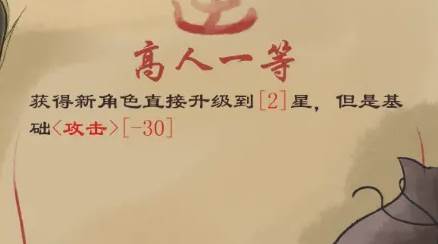 高人一等
获得新角色直接升级到[2]星，但是基
础<攻击>[-30]